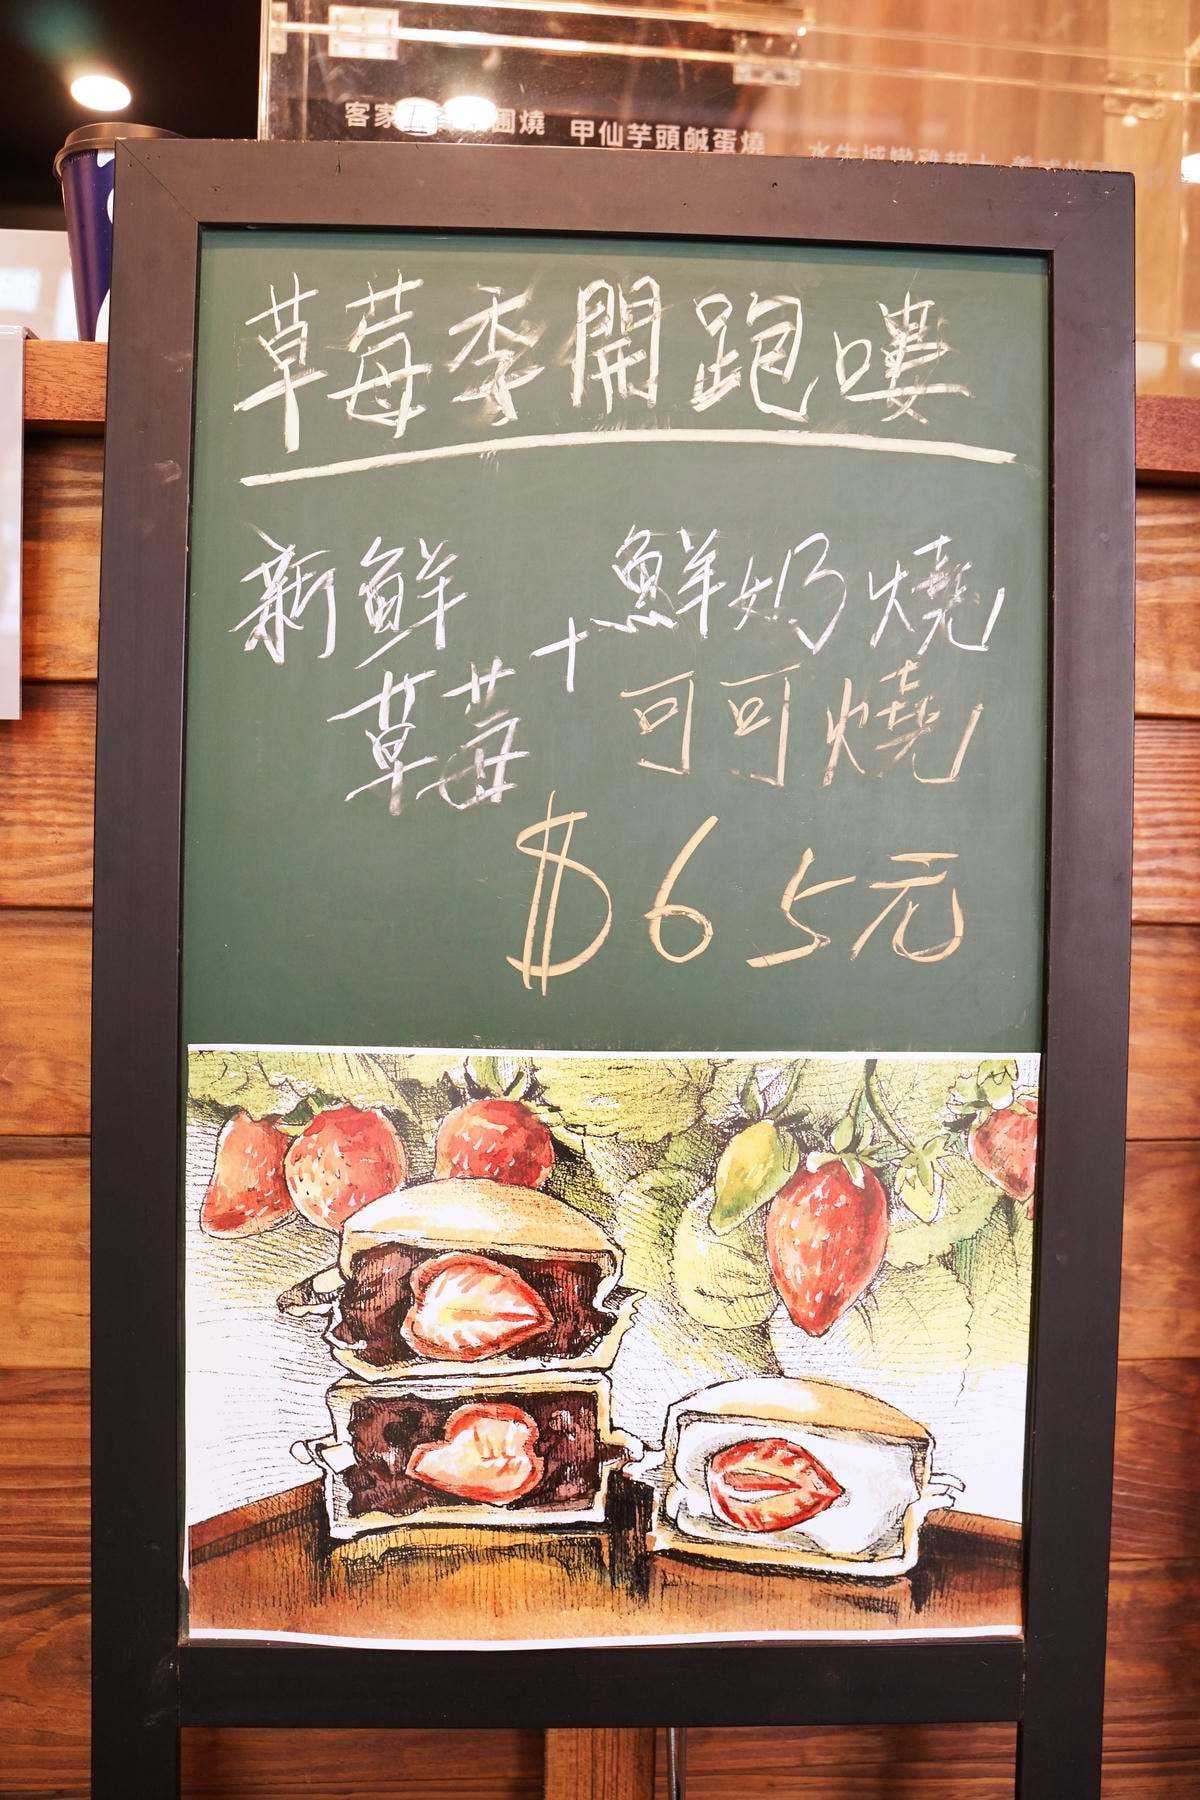 客家 圃燒 甲仙芋頭鹹蛋燒
草莓季開跑嘍
新鮮草莓 + 鮮奶燒
可可燒
$65元